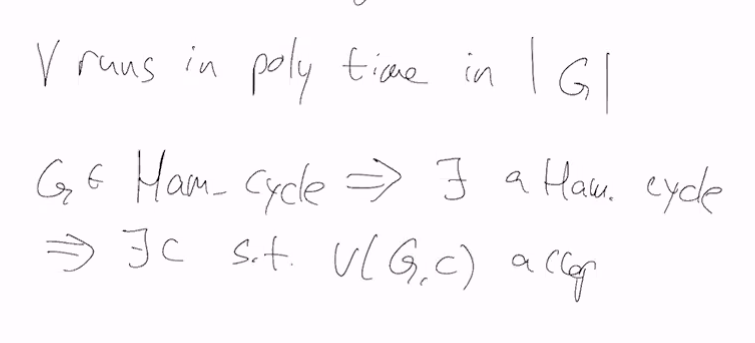 V runs in poly time in |G|
G ∈ Ham-cycle ⇒ ∃ a Ham. cycle
⇒ ∃c s.t. V(G,c)